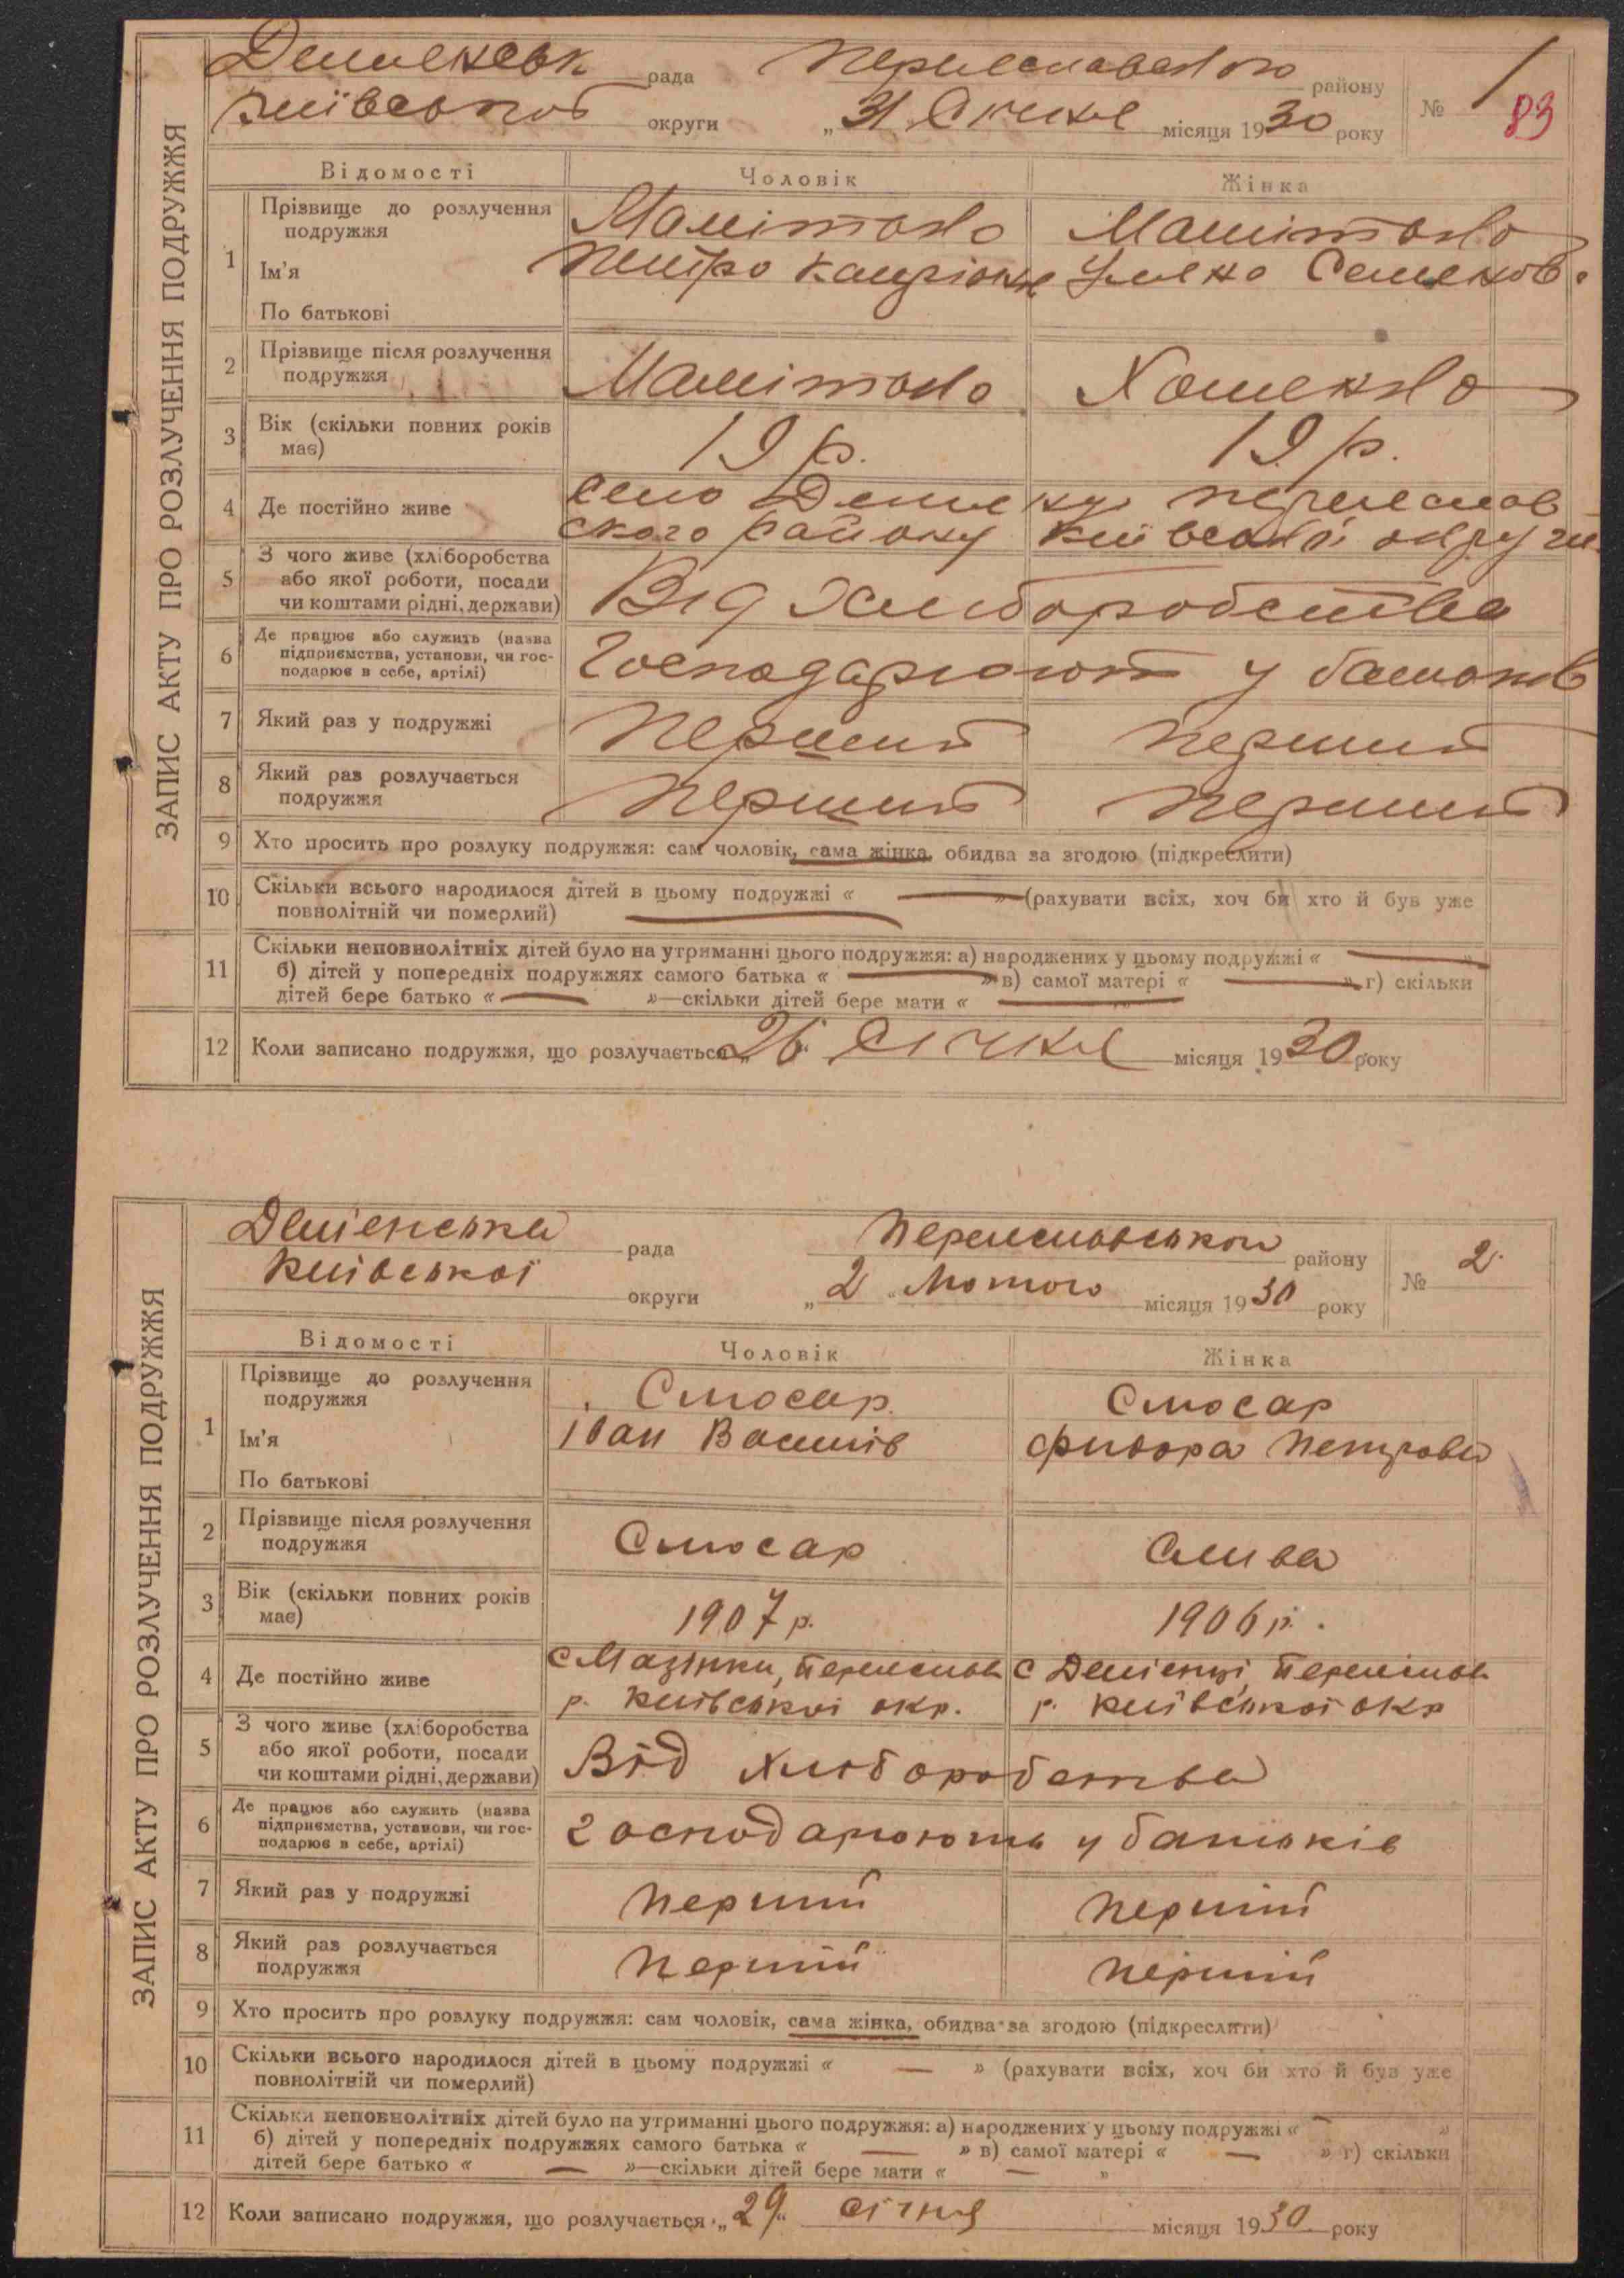 ЗАПИС АКТУ ПРО РОЗЛУЧЕННЯ ПОДРУЖЖЯ
рада Переяславського району № 1
83
Київської округи „31 Січня місяця 1930 року
Відомості Чоловік Жінка
1 Прізвище до розлучення подружжя
Ім'я Петро Семенов
По батькові
2 Прізвище після розлучення
подружжя Хоменко
3 Вік (скільки повних років
має) 19 р. 19 р.
4 Де постійно живе село
ского району Київської округи
5 З чого живе (хліборобства
або якої роботи, посади
чи коштами рідні, держави) Від Хліборобства
6 Де працює або служить (назва
підприємства, установи, чи гос-
подарює в себе, артілі) Господарюют у батьків
7 Який раз у подружжі Перший Перший
8 Який раз розлучається
подружжя Перший Перший
9 Хто просить про розлуку подружжя: сам чоловік, сама жінка, обидва за згодою (підкреслити)
10 Скільки всього народилося дітей в цьому подружжі « — » (рахувати всіх, хоч би хто й був уже
повнолітній чи померлий) —
11 Скільки неповнолітніх дітей було на утриманні цього подружжя: а) народжених у цьому подружжі « — »
б) дітей у попередніх подружжях самого батька « — » в) самої матері « — » г) скільки
дітей бере батько « — »—скільки дітей бере мати « — »
12 Коли записано подружжя, що розлучається „26“ Січня місяця 1930 року
ЗАПИС АКТУ ПРО РОЗЛУЧЕННЯ ПОДРУЖЖЯ
рада району № 2
Київської округи „2“ Лютого місяця 1930 року
Відомості Чоловік Жінка
1 Прізвище до розлучення
подружжя Слюсар Слюсар
Ім'я Іван Васильів Петрова
По батькові
2 Прізвище після розлучення
подружжя Слюсар Слива
3 Вік (скільки повних років
має) 1907 р. 1906 р.
4 Де постійно живе с Мазінки, Переяслав с Деміенці, Переяслав
р. Київської окр. р. Київської окр
5 З чого живе (хліборобства
або якої роботи, посади
чи коштами рідні, держави) Від хліборобства
6 Де працює або служить (назва
підприємства, установи, чи гос-
подарює в себе, артілі) господарюють у батьків
7 Який раз у подружжі перший перший
8 Який раз розлучається
подружжя перший перший
9 Хто просить про розлуку подружжя: сам чоловік, сама жінка, обидва за згодою (підкреслити)
10 Скільки всього народилося дітей в цьому подружжі « — » (рахувати всіх, хоч би хто й був уже
повнолітній чи померлий)
11 Скільки неповнолітніх дітей було на утриманні цього подружжя: а) народжених у цьому подружжі « — »
б) дітей у попередніх подружжях самого батька « — » в) самої матері « — » г) скільки
дітей бере батько « — »—скільки дітей бере мати « — »
12 Коли записано подружжя, що розлучається „29“ січня місяця 1930 року